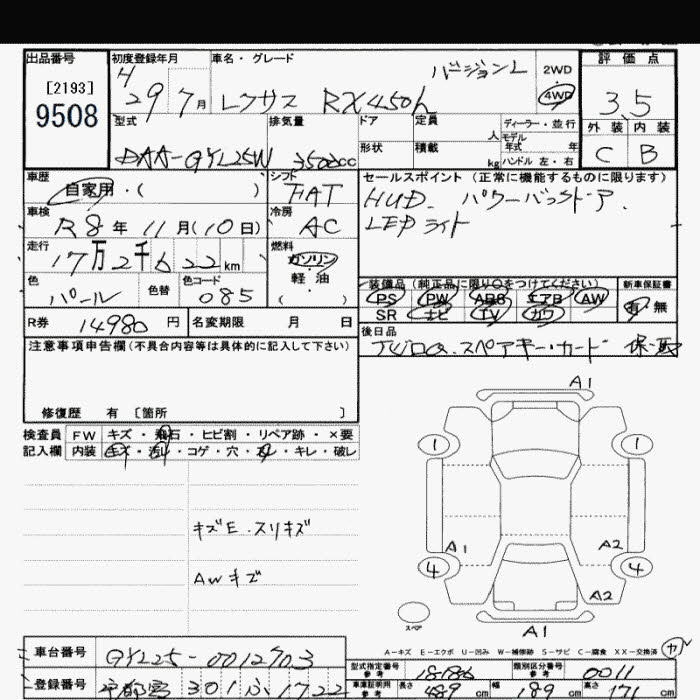 出品番号
[2193]
9508
初度登録年月
H 29 7 月
車名・グレード
バージョンL
レクサス RX450h
2WD
4WD
評価点
3.5
外装 内装
C B
型式
DAA-GYL25W
排気量
3500cc
ドア
形状
定員 人
積載 kg
ディーラー・並行
モデル
年式 年
ハンドル 左・右
車歴
自家用・( )
シフト
FAT
車検
R8 年 11 月 (10 日)
冷房
AC
走行
17 万 2 千 622 km
燃料
ガソリン
軽油
( )
色
パール
色替
色コード
085
セールスポイント (正常に機能するものに限ります)
HUD. パワーバックドア.
LEDライト
装備品 (純正品に限り○をつけてください)
PS PW ABS エアB AW
SR ナビ TV カワ
新車保証書
有・無
R券 14980 円
名変期限 月 日
後日品
スペアキー・カード 保・取
注意事項申告欄 (不具合内容等は具体的に記入して下さい)
修復歴 有 〔箇所 〕
検査員
記入欄
FW キズ・飛石・ヒビ割・リペア跡・×要
内装 キズ・汚レ・コゲ・穴・スレ・キレ・破レ
キズE・スリキズ
AWキズ
A1
1 1
A1 A2
4 4
A2
スペア
A1
A-キズ E-エクボ U-凹み W-補修跡 S-サビ C-腐食 XX-交換済
車台番号 GYL25-0012703
登録番号 宇都宮 301 ふ 1722
型式指定番号
参考
18186
類別区分番号
参考
0011
車庫証明用
参考
長さ 489 cm 幅 189 cm 高さ 171 cm